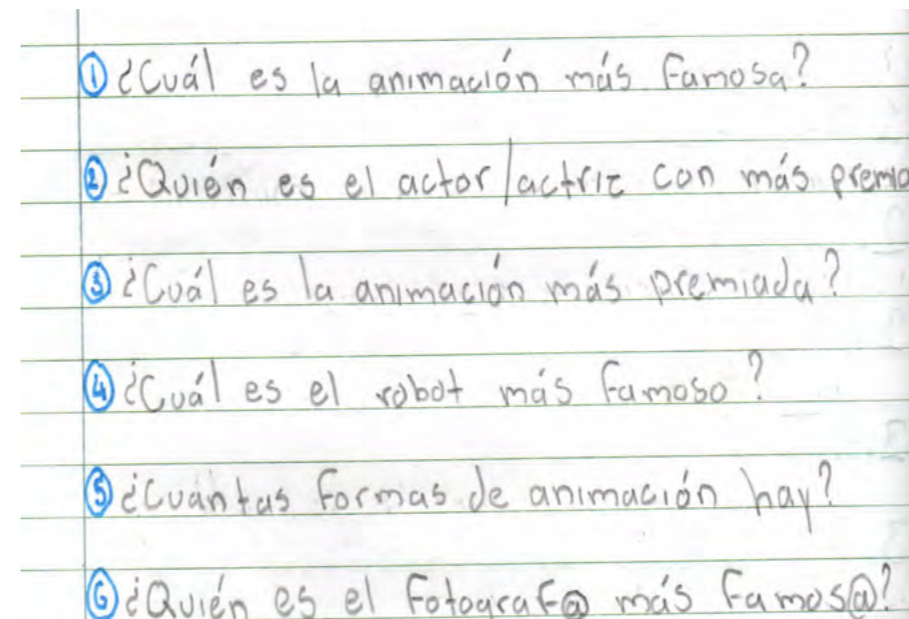 ① ¿Cuál es la animación más famosa?
② ¿Quién es el actor/actriz con más premio
③ ¿Cuál es la animación más premiada?
④ ¿Cuál es el robot más famoso?
⑤ ¿Cuántas formas de animación hay?
⑥ ¿Quién es el fotograf@ más famos@?